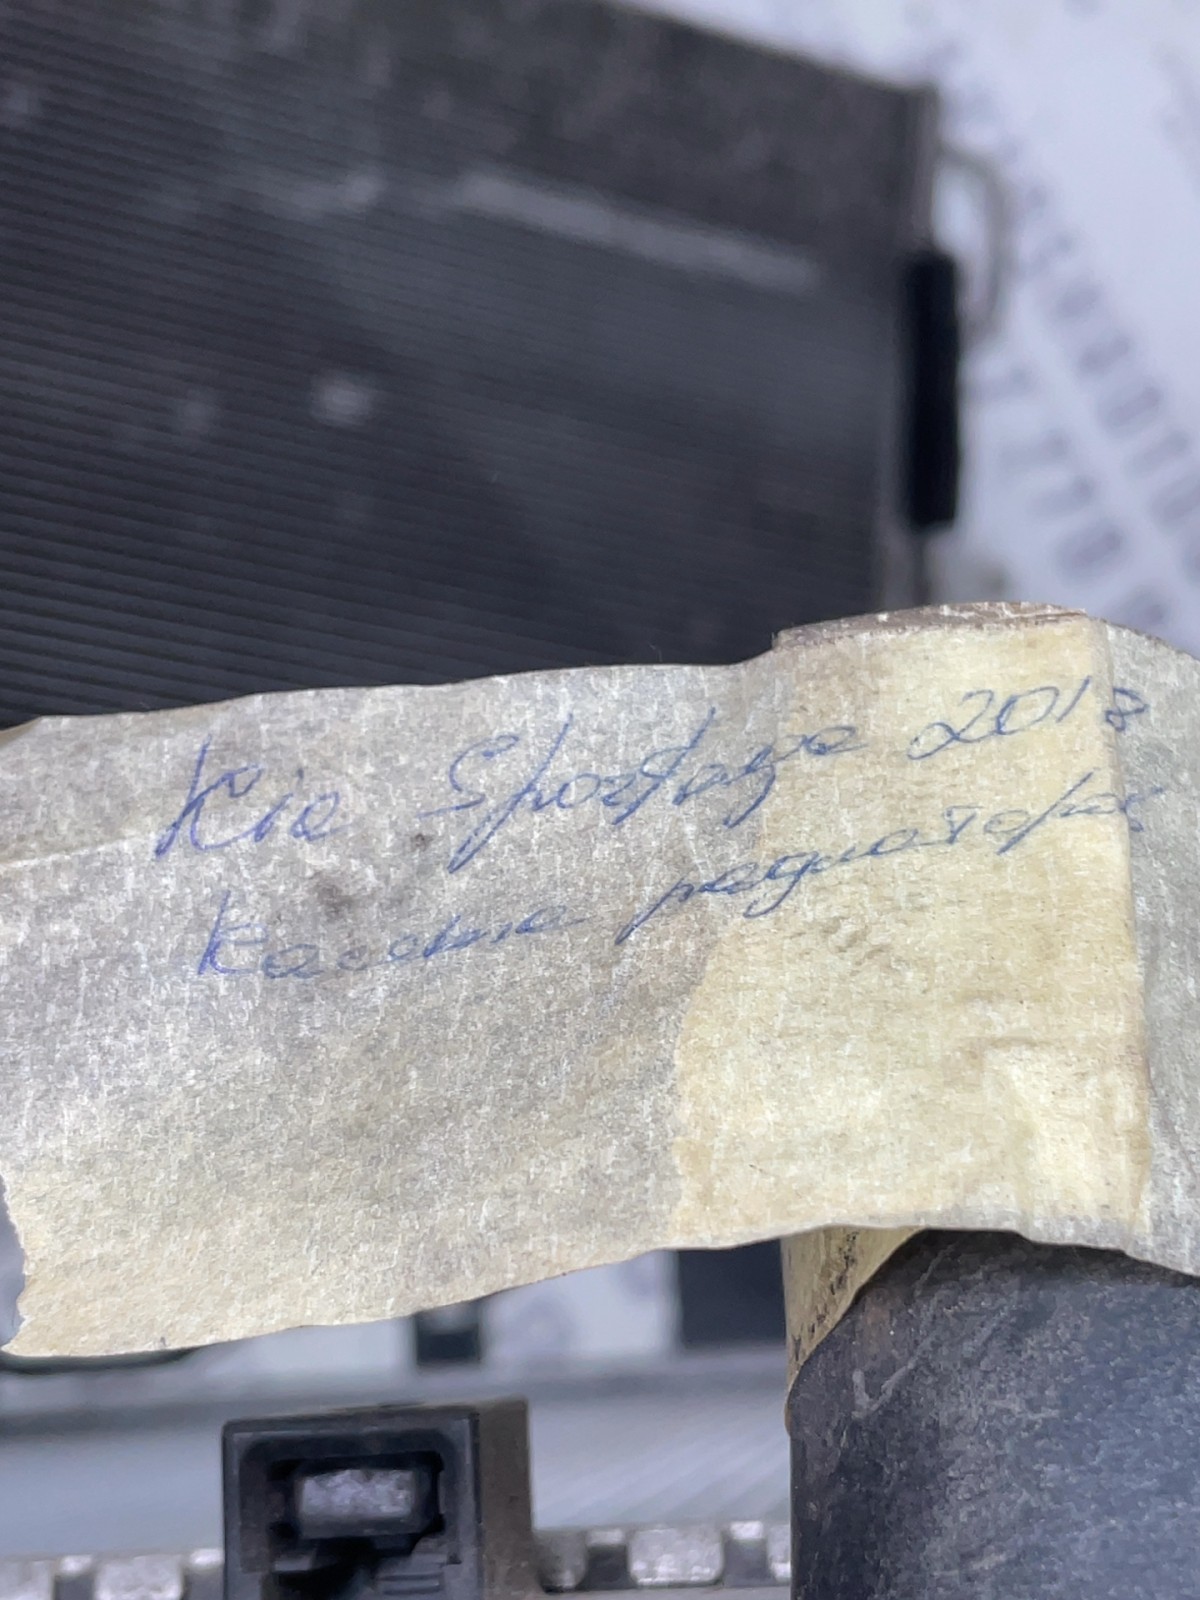 Kia Sportage 2018
касета радиаторов